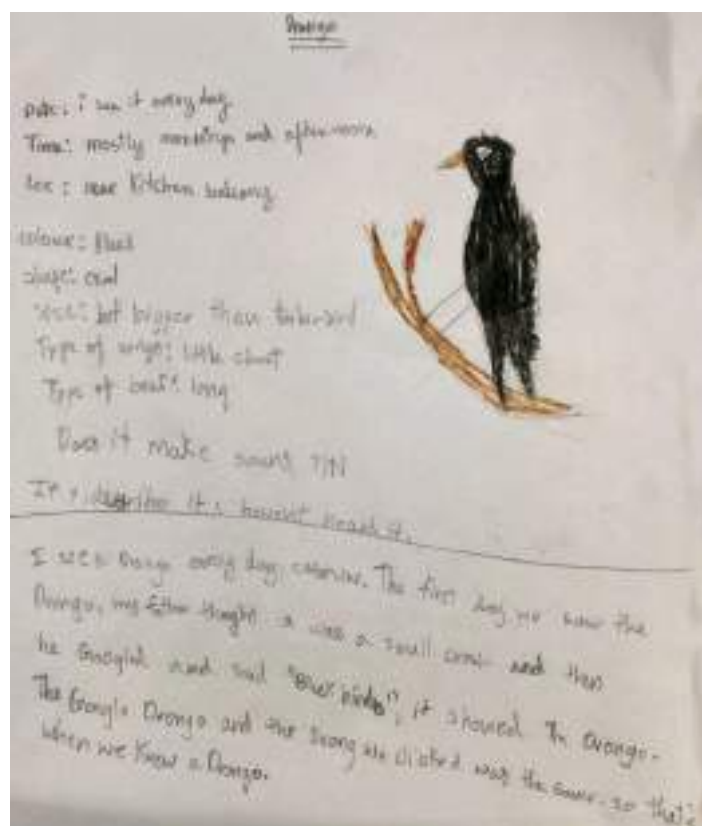 Drongo
Date: i see it every day
Time: mostly mornings and afternoons
Loc: near Kitchen balcony
colour: Black
shape: oval
size: bit bigger than
Type of wings: little short
Type of beak: long
Does it make sound Y/N
If y, describe it: haven't heard it.
I see a Drongo every day,. The first day we saw the
Drongo, my father thought it was a small crow and then
he Googled and said "Black birds", it showed the Drongo.
The Google Drongo and the Drongo we clicked was the same. so that's
when we knew a Drongo.